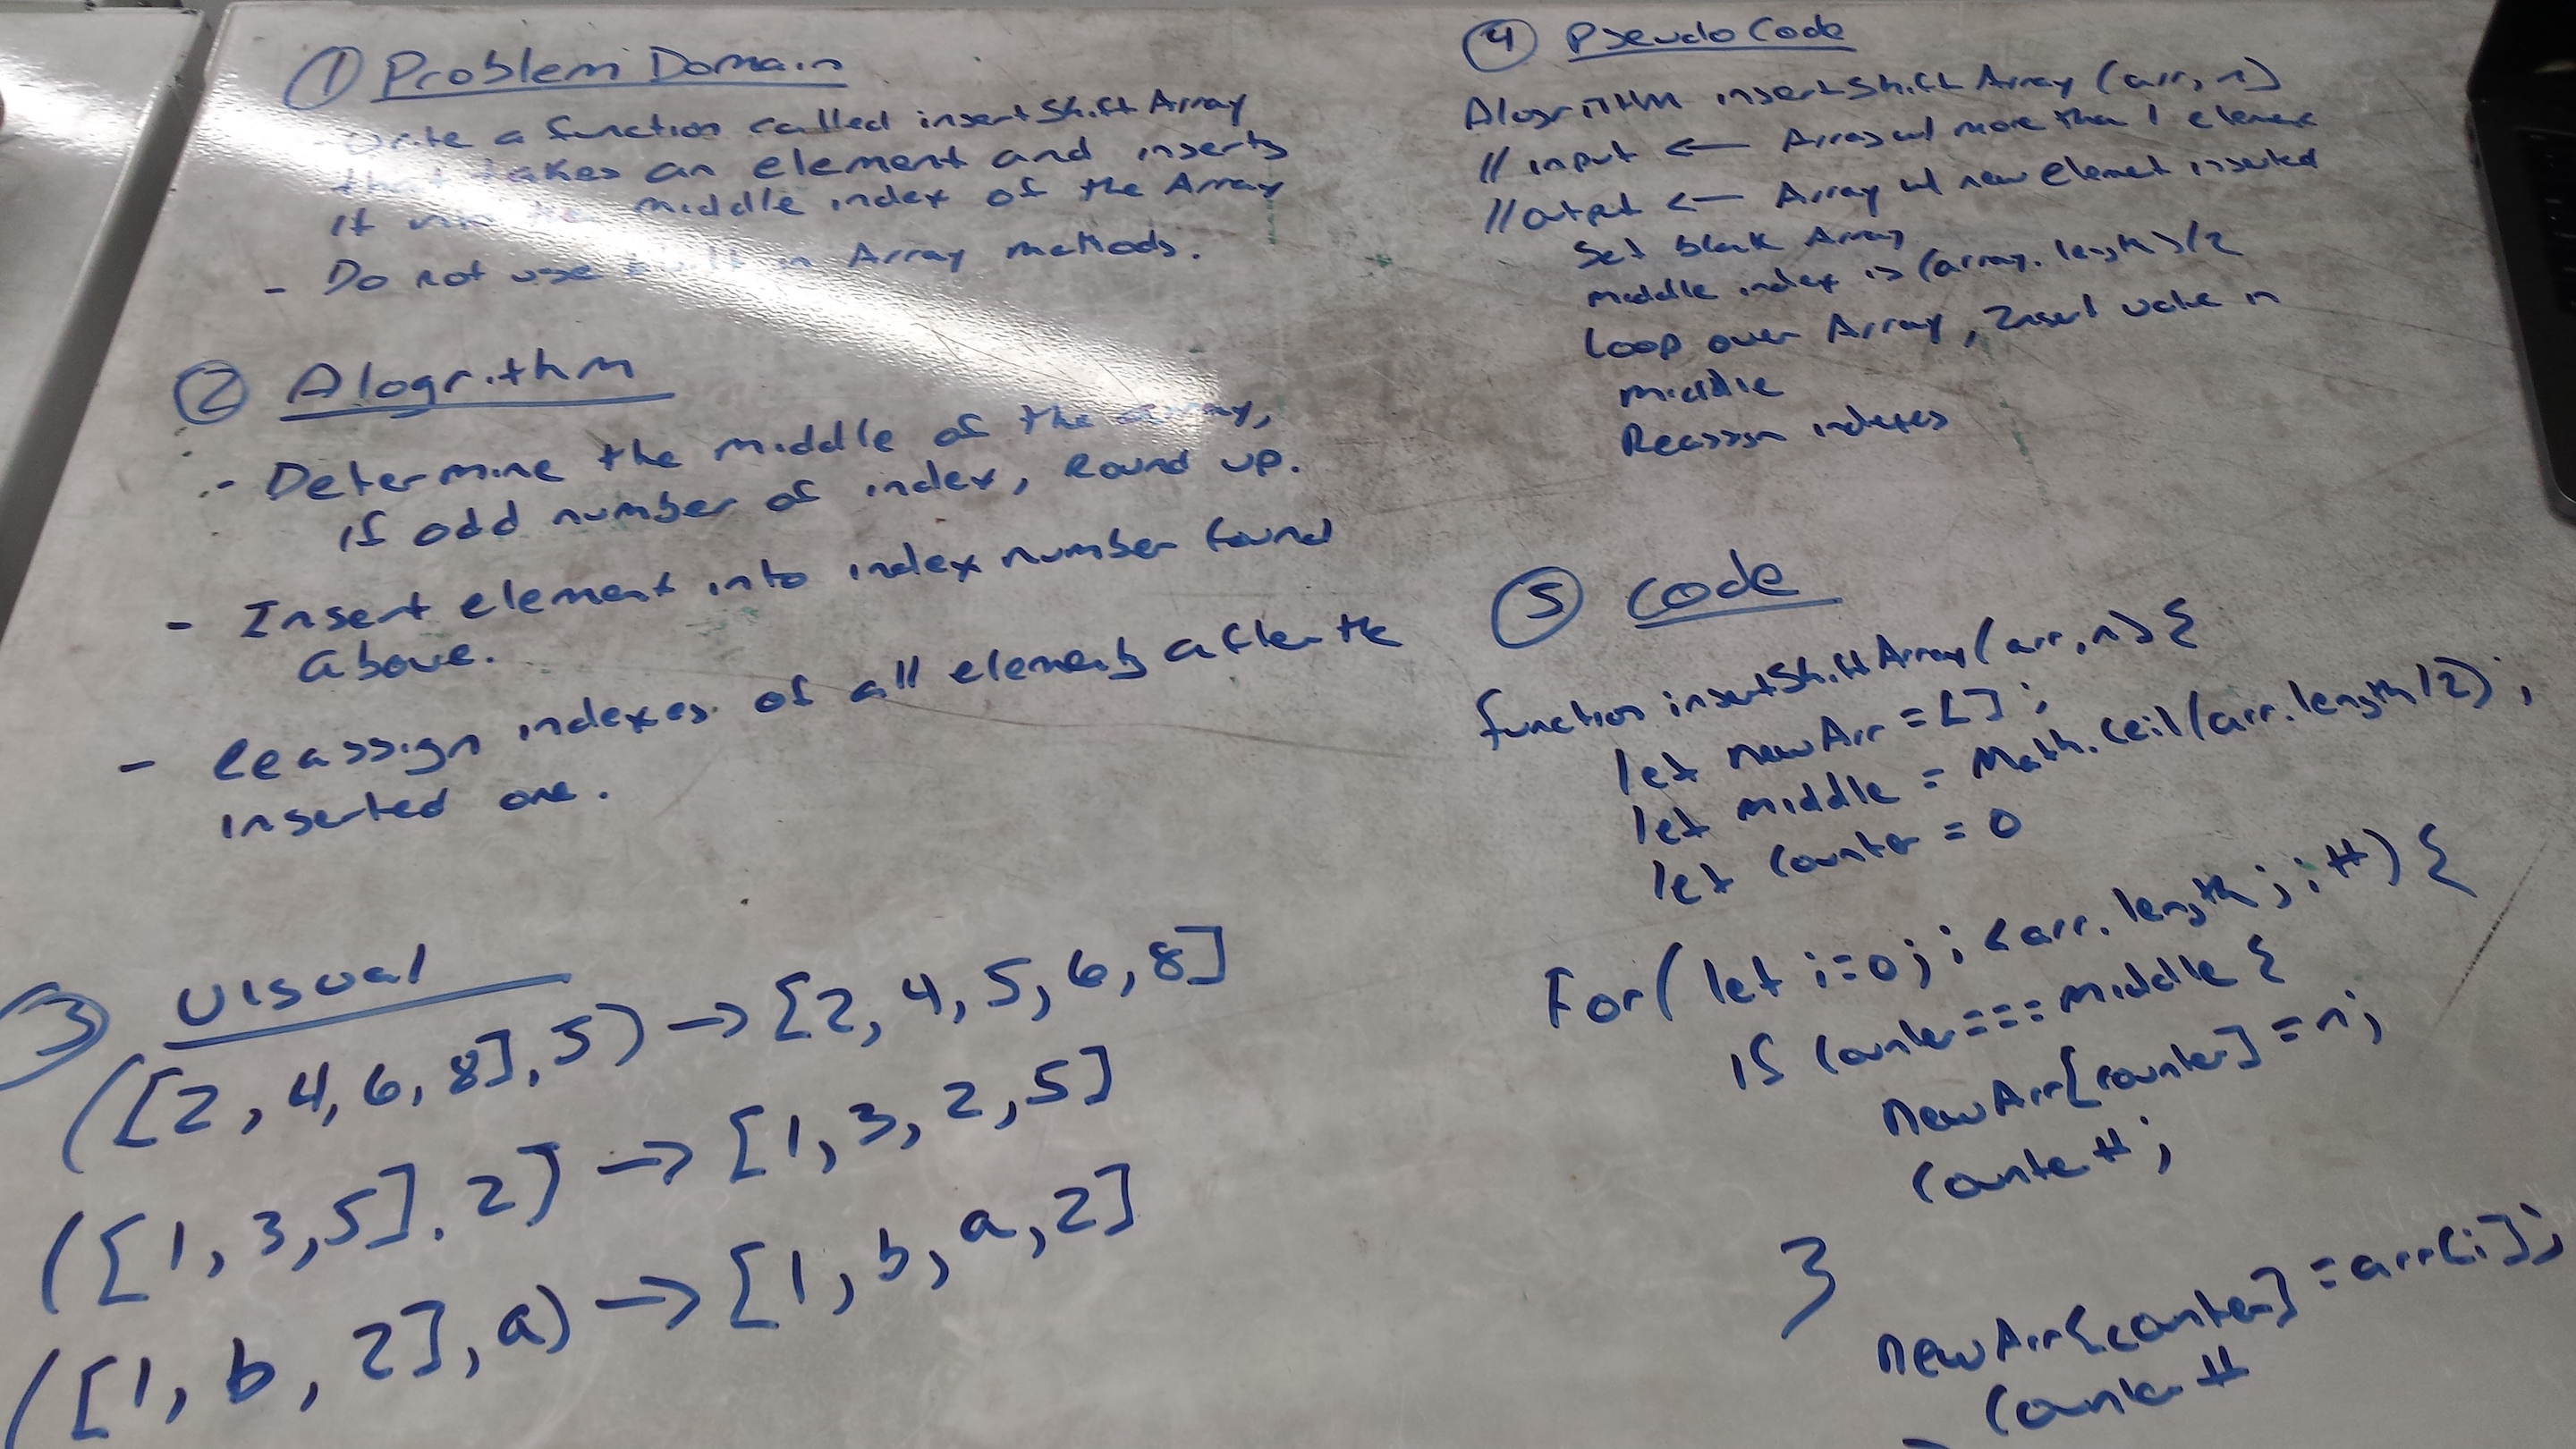 ① Problem Domain
- Write a function called insertShiftArray
that takes an element and inserts
it into the middle index of the Array
- Do not use built in Array methods.
② Alogrithm
- Determine the middle of the array,
if odd number of index, Round up.
- Insert element into index number found
above.
- Reassign indexes of all elements after the
inserted one.
③ Visual
([2, 4, 6, 8], 5) → [2, 4, 5, 6, 8]
([1, 3, 5], 2) → [1, 3, 2, 5]
([1, b, 2], a) → [1, b, a, 2]
④ Pseudo Code
AlogriTHM insertShift Array (arr, n)
// input ← Array w/ more than 1 element
// output ← Array w/ new element inserted
Set blank Array
middle index is (array.length)/2
Loop over Array, Insert value in
middle
Reassign indexes
⑤ Code
function insertShiftArray(arr, n) {
let newArr = [];
let middle = Math.ceil(arr.length/2);
let counter = 0
For( let i=0; i<arr.length; i++) {
if counter===middle {
newArr[counter] = n;
counter++;
}
newArr[counter] = arr[i];
counter++